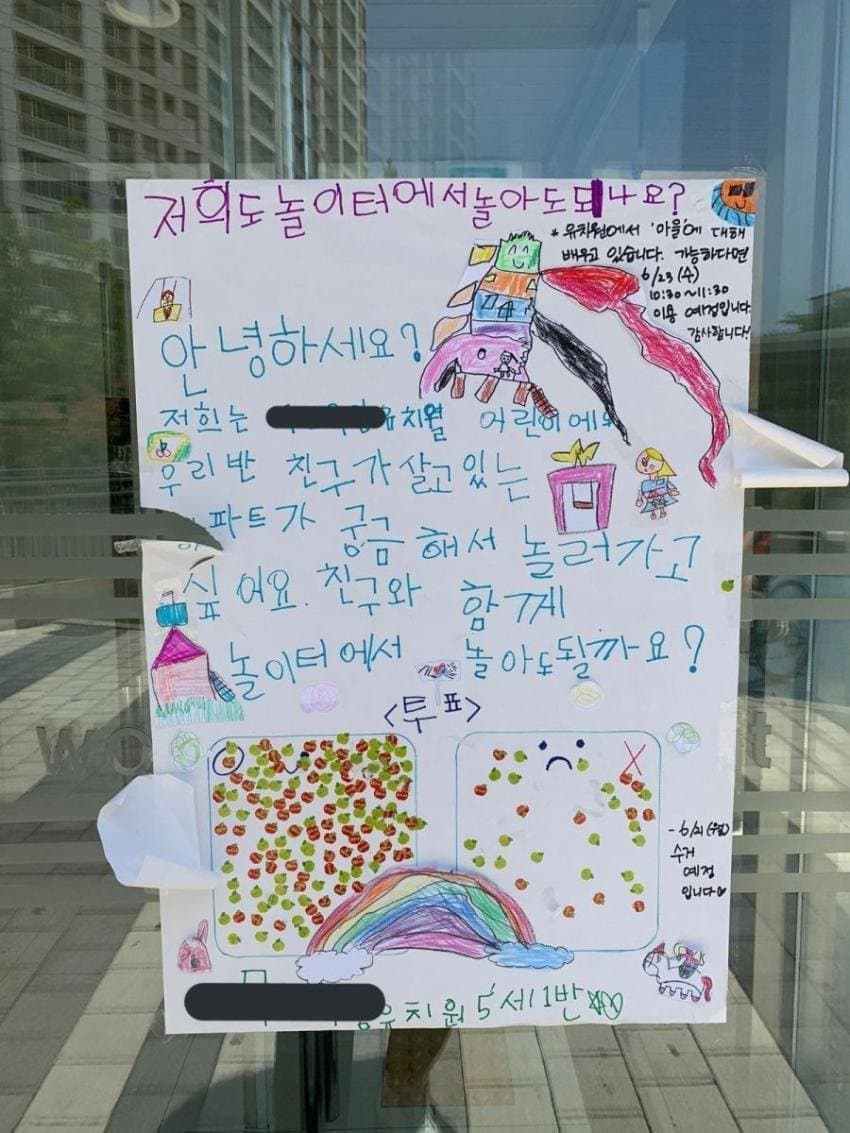 저희도 놀이터에서 놀아도 되나요?
* 유치원에서 '마을'에 대해
배우고 있습니다. 가능하다면
6/23 (수)
10:30~11:30
이용 예정입니다
감사합니다!
안녕하세요?
저희는 어린이에요
우리반 친구가 살고있는
파트가 궁금해서 놀러가고
싶어요. 친구와 함께
놀이터에서 놀아도될까요?
<투표>
O X
- 6/21 (월)
수거
예정
입니다♡
유치원 5세 1반